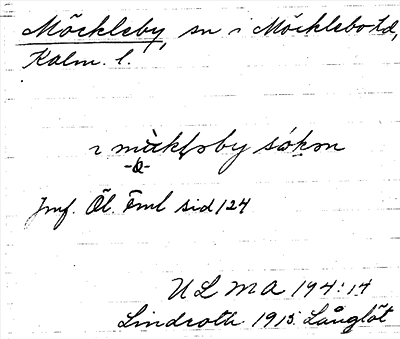 Möckleby, sn i Möcklebo td,
Kalm. l.
i mùkləby sókən
-ù-
Jmf. Öl. Fml sid 124
ULMA 194:14
Lindroth 1915. Långlöt